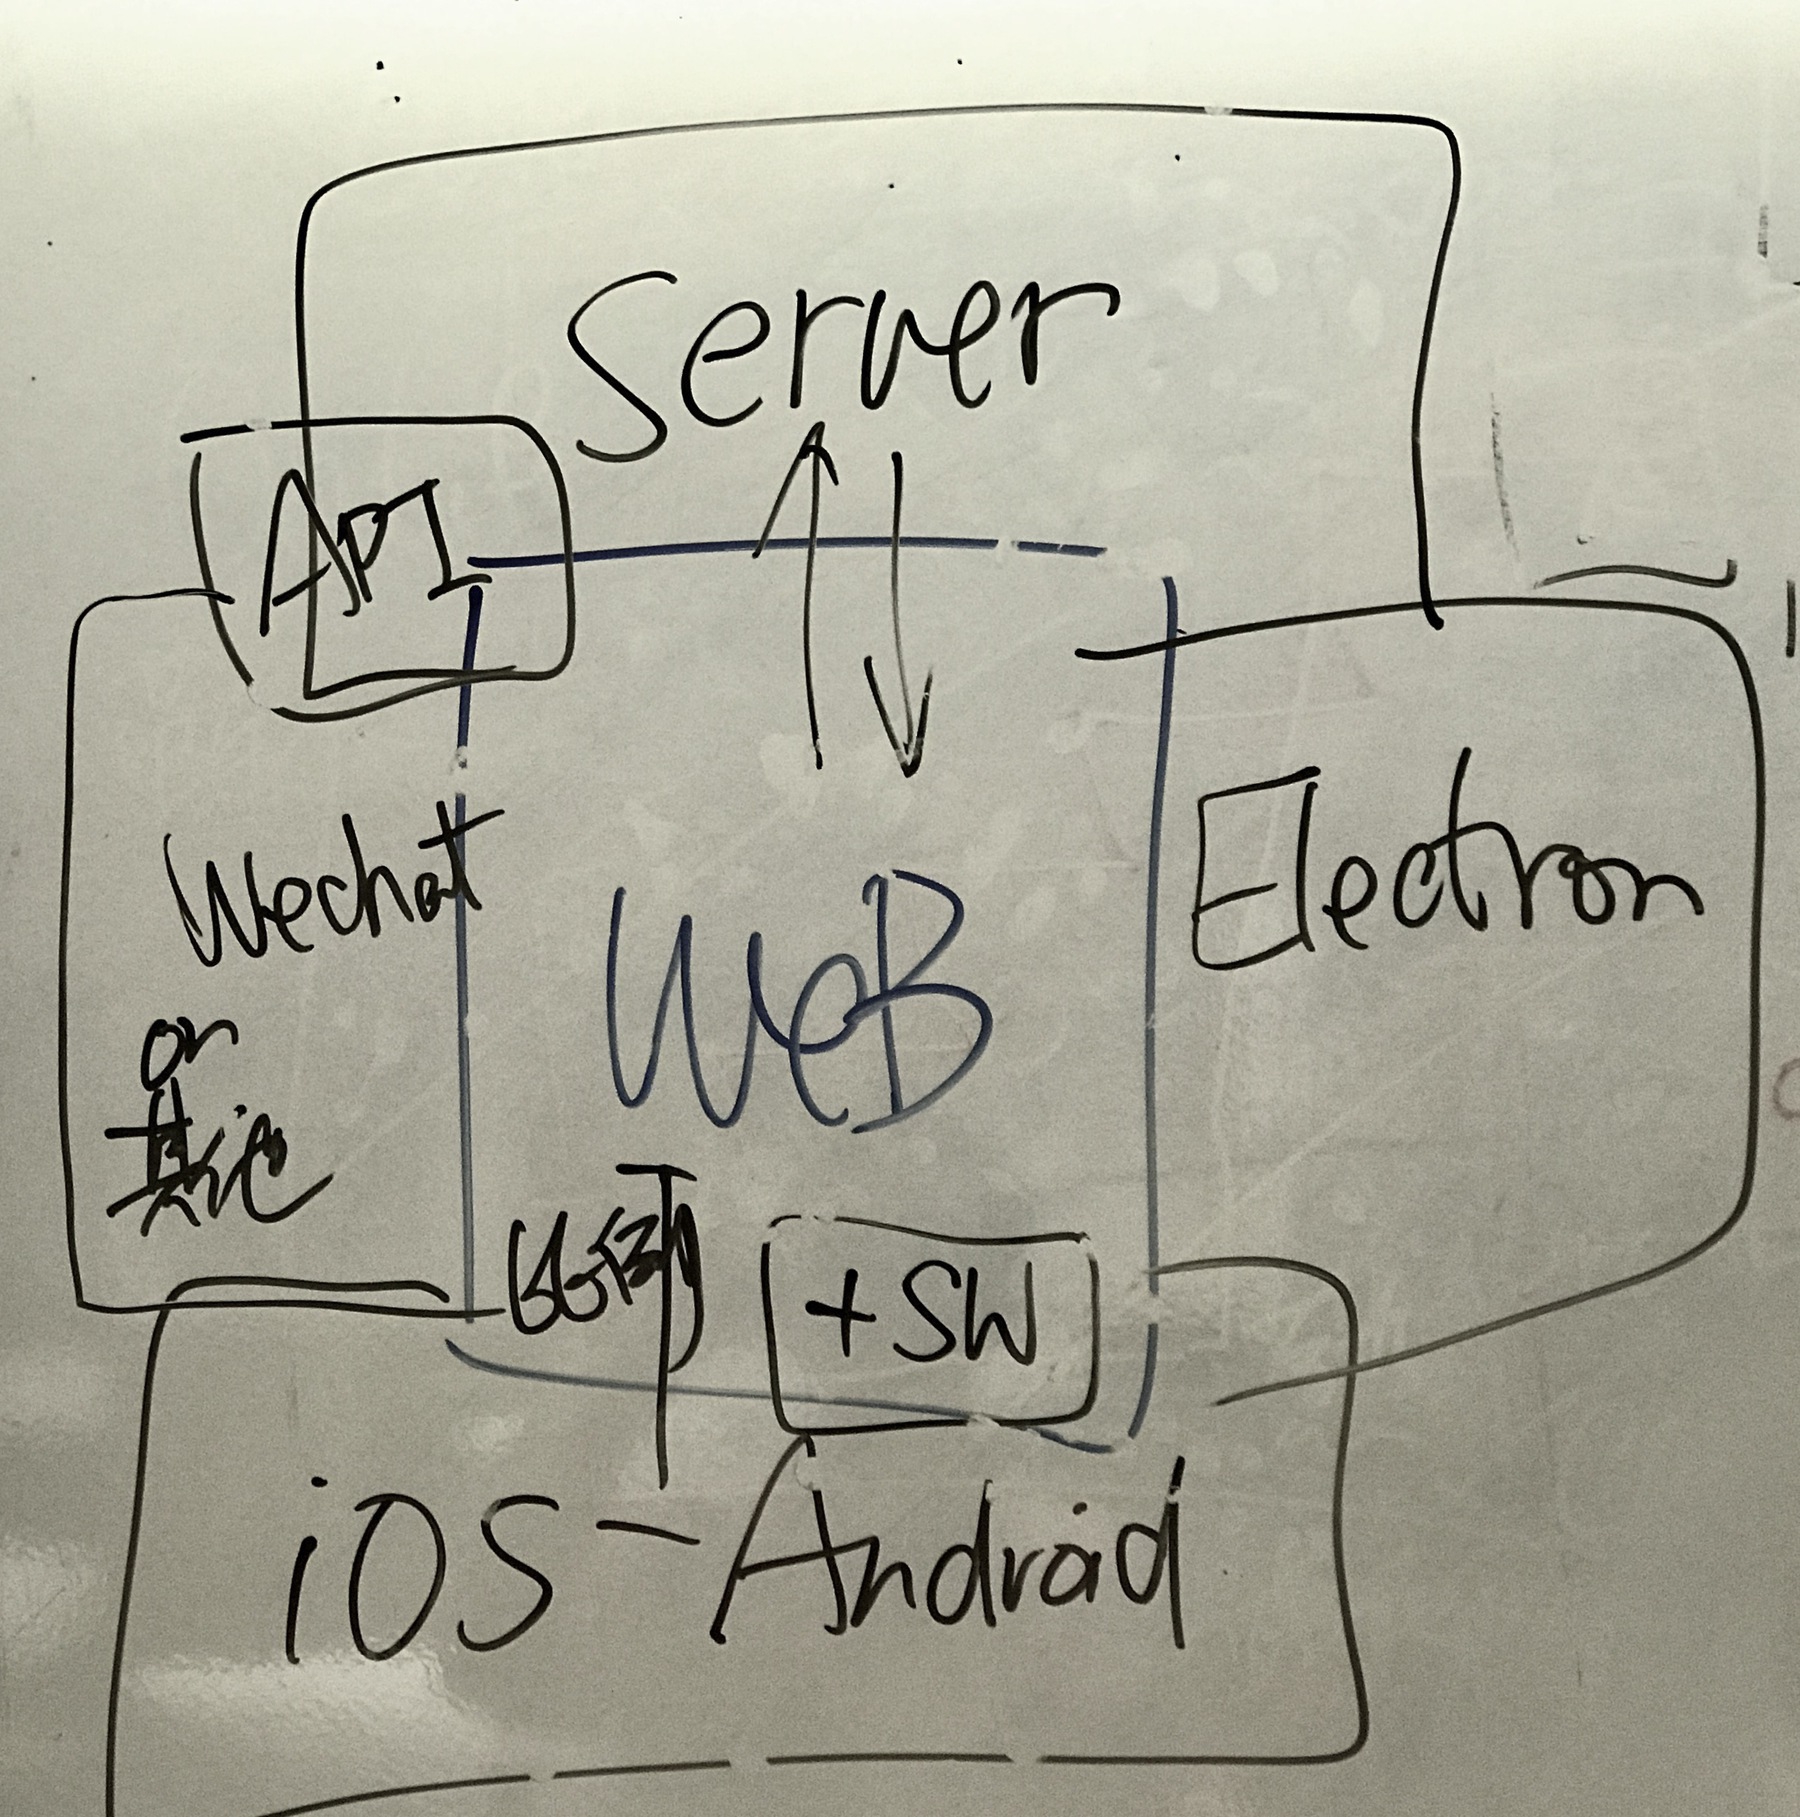 Server
API
Wechat
or
其他
WeB
Electron
+SW
iOS - Android